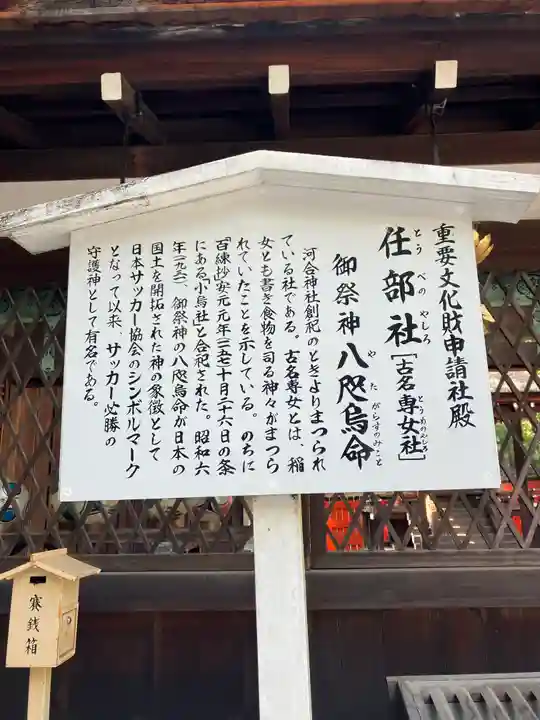 重要文化財申請社殿
任部社[古名専女社]
とうべのやしろ
とうめのやしろ
御祭神八咫烏命
やたがらすのみこと
河合神社創祀のときよりまつられ
ている社である。古名専女とは、稲
女とも書き食物を司る神々がまつら
れていたことを示している。のちに
「百練抄安元元年(一一七五)十月二十六日の条
にある小烏社」と合祀された。昭和六
年(一九三一)、御祭神の八咫烏命が日本の
国土を開拓された神の象徴として
日本サッカー協会のシンボルマーク
となって以来、サッカー必勝の
守護神として有名である。
賽銭箱